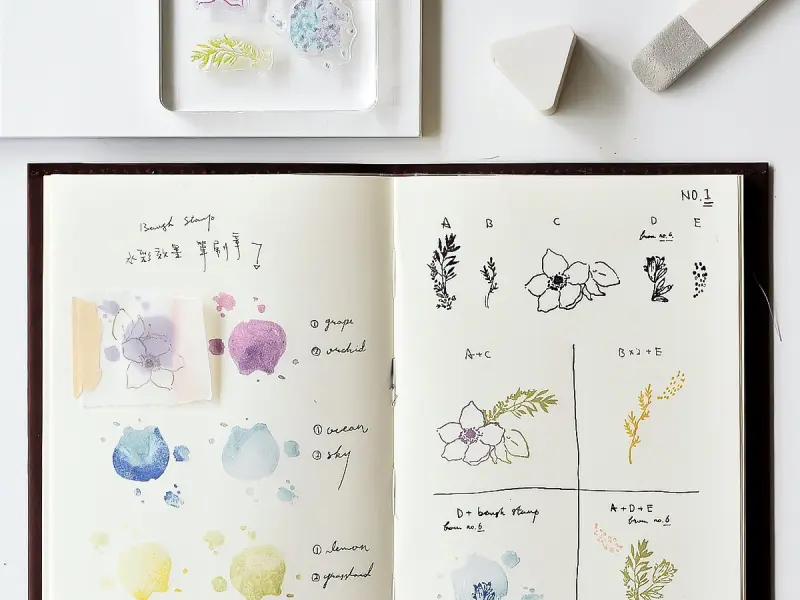 Baugh Stamp
水彩效果 單刷章
① grape
② orchid
① ocean
② sky
① lemon
② grassland
NO.1
A B C D E
from no.6
A+C
B×2+E
D + baugh stamp
from no.6
A+D+E
from no.6